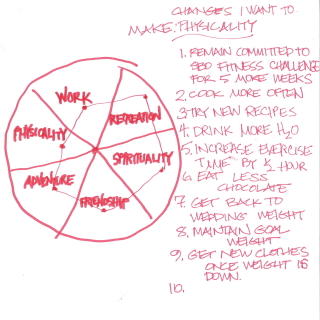 CHANGES I WANT TO
MAKE: PHYSICALITY
1. REMAIN COMMITTED TO
SEO FITNESS CHALLENGE
FOR 5 MORE WEEKS
2. COOK MORE OFTEN
3. TRY NEW RECIPES
4. DRINK MORE H2O
5. INCREASE EXERCISE
TIME BY ½ HOUR
6. EAT LESS
CHOCOLATE
7. GET BACK TO
WEDDING WEIGHT
8. MAINTAIN GOAL
WEIGHT
9. GET NEW CLOTHES
ONCE WEIGHT IS
DOWN.
10.
WORK
RECREATION
PHYSICALITY
SPIRITUALITY
ADVENTURE
FRIENDSHIP